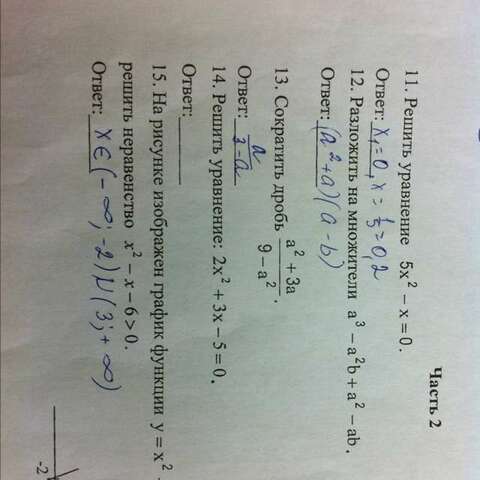 Часть 2
11. Решить уравнение 5x² − x = 0.
Ответ: x₁=0, x = 1/5 = 0,2
12. Разложить на множители a³ − a²b + a² − ab.
Ответ: (a²+a)(a−b)
13. Сократить дробь (a² + 3a)/(9 − a²).
Ответ: a/(3−a)
14. Решить уравнение: 2x² + 3x − 5 = 0.
Ответ:
15. На рисунке изображен график функции y = x² -
решить неравенство x² − x − 6 > 0.
Ответ: x∈(−∞; −2) И (3; +∞)
-2